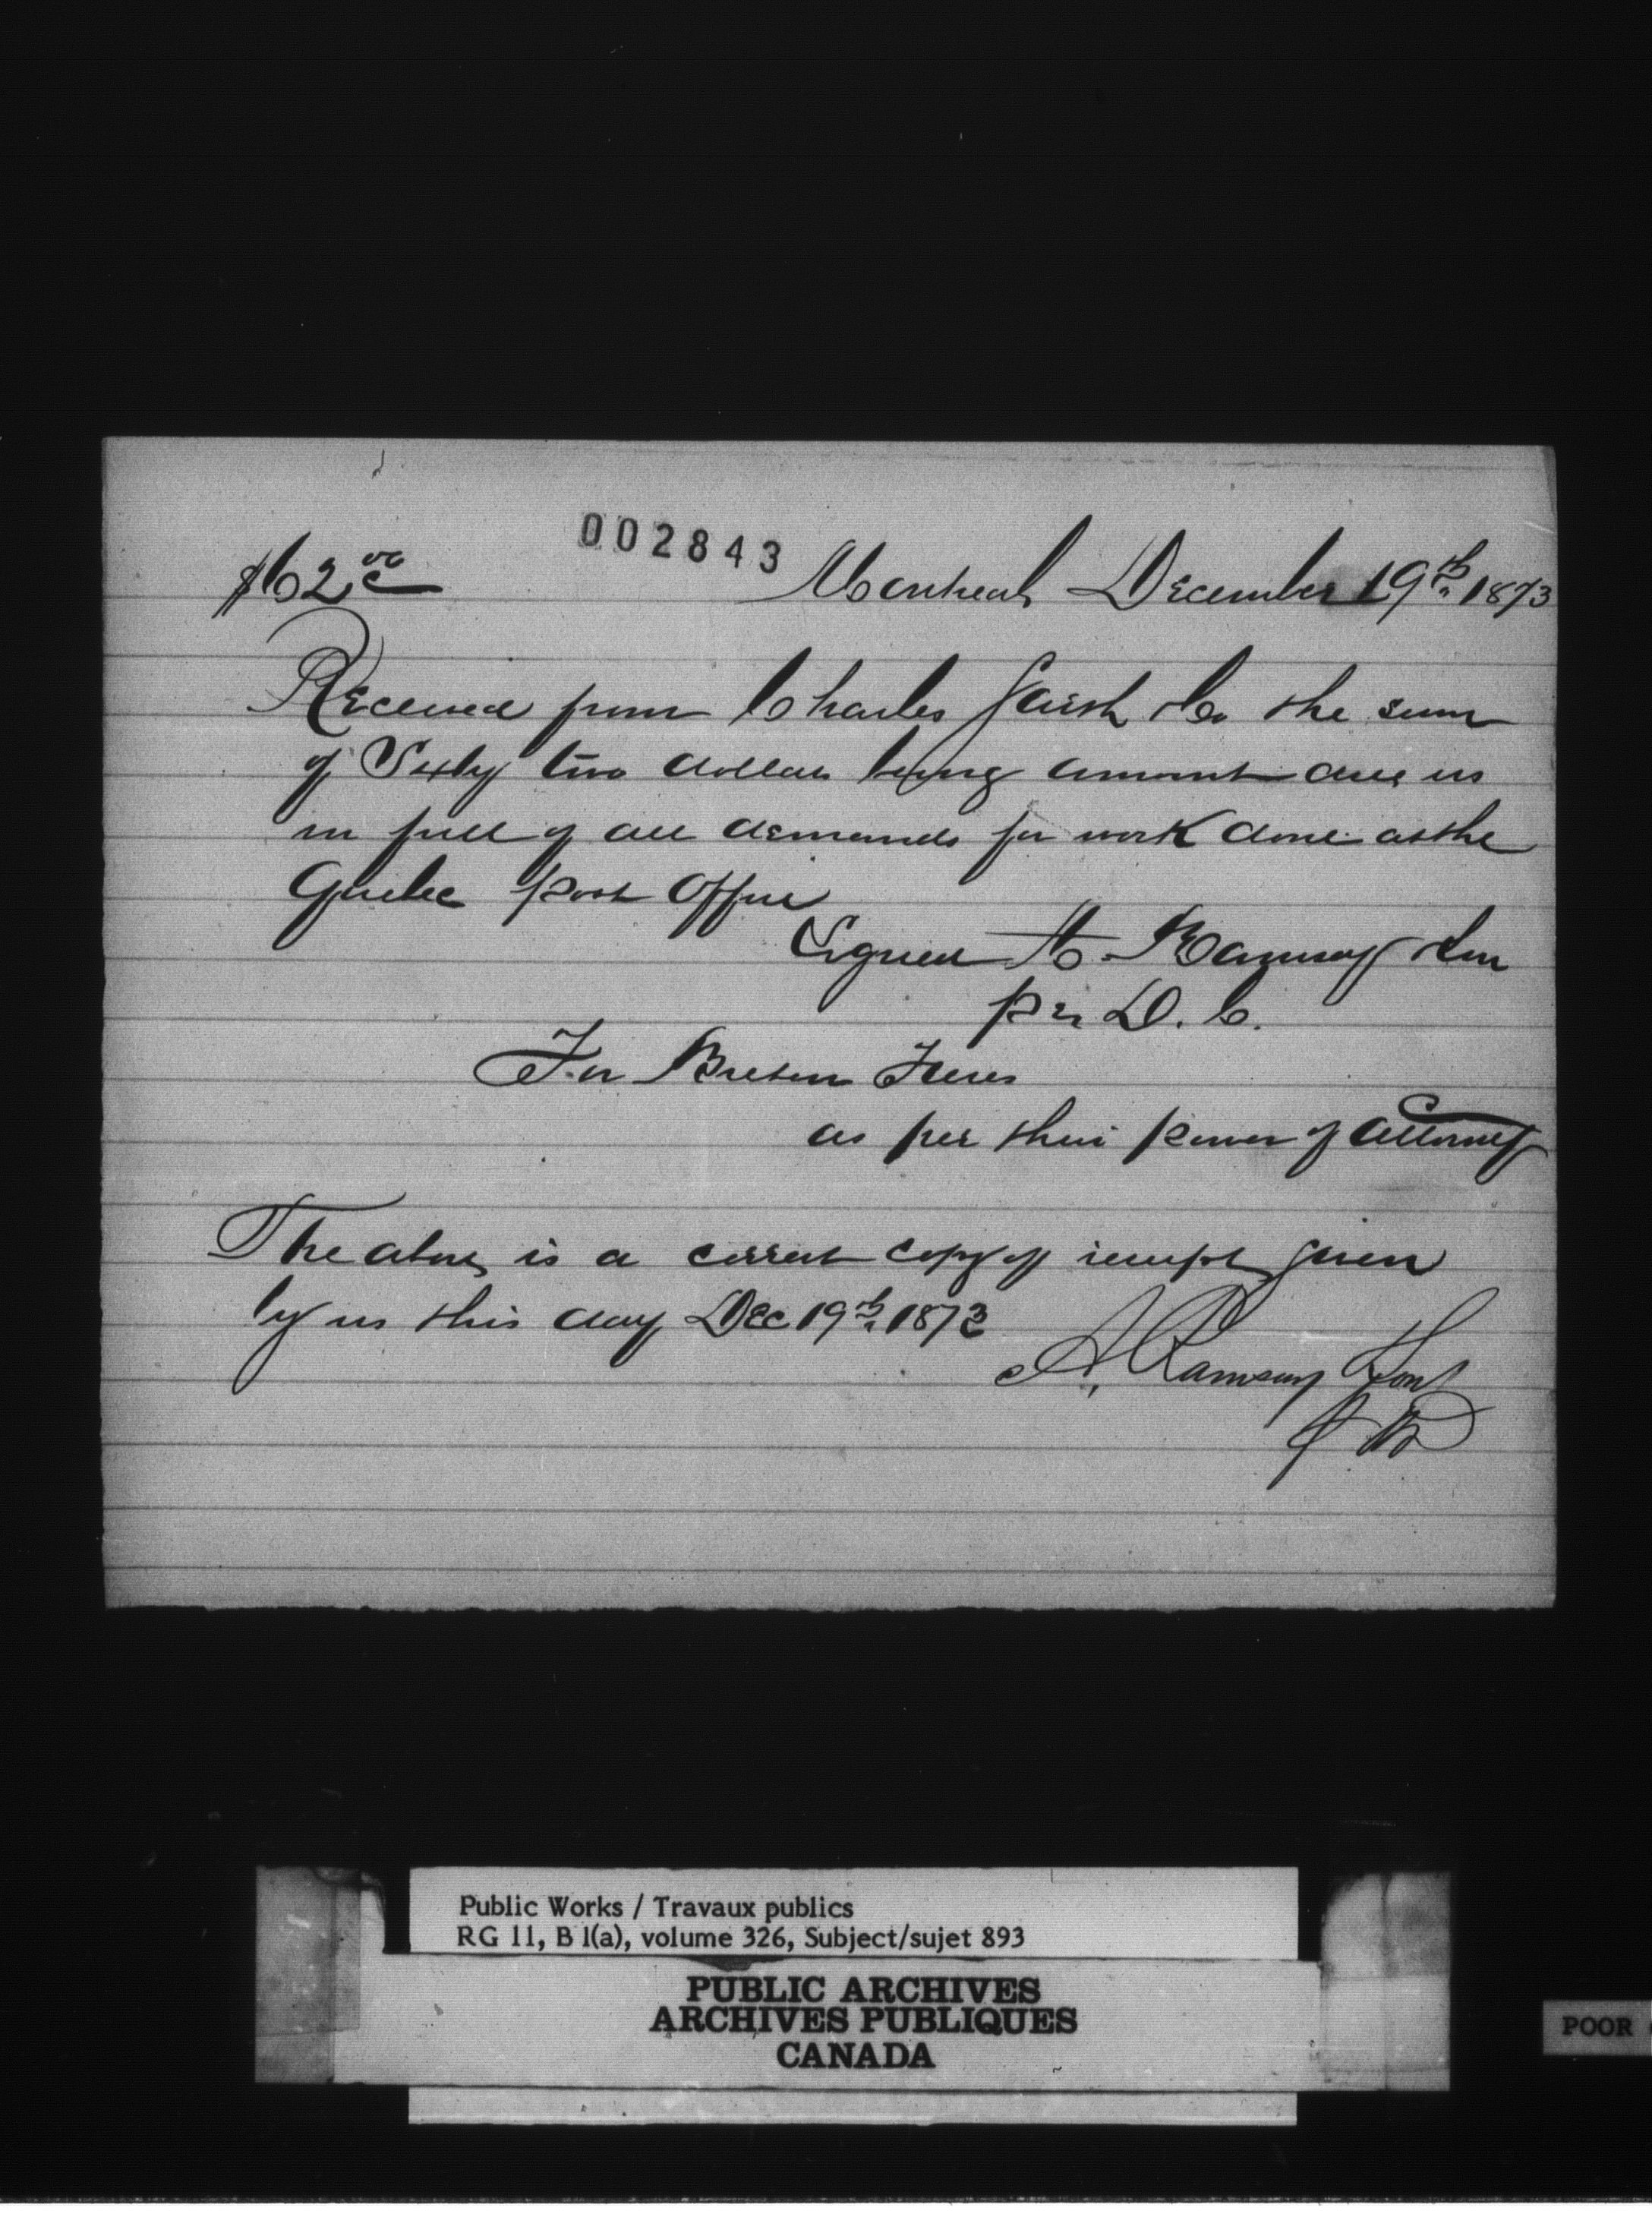 002843
$62 00/c Montreal December 19th 1873
Received from Charles Garth & Co the sum
of Sixty two dollars being amount due us
in full of all demands for work done at the
Quebec Post Office
Signed A. Ramsay & Son
per D. C.
For Breton Freres
as per their power of Attorney
The above is a correct copy of receipt given
by us this day Dec 19th 1873
A. Ramsay & Son
Public Works / Travaux publics
RG 11, B 1(a), volume 326, Subject/sujet 893
PUBLIC ARCHIVES
ARCHIVES PUBLIQUES
CANADA
POOR